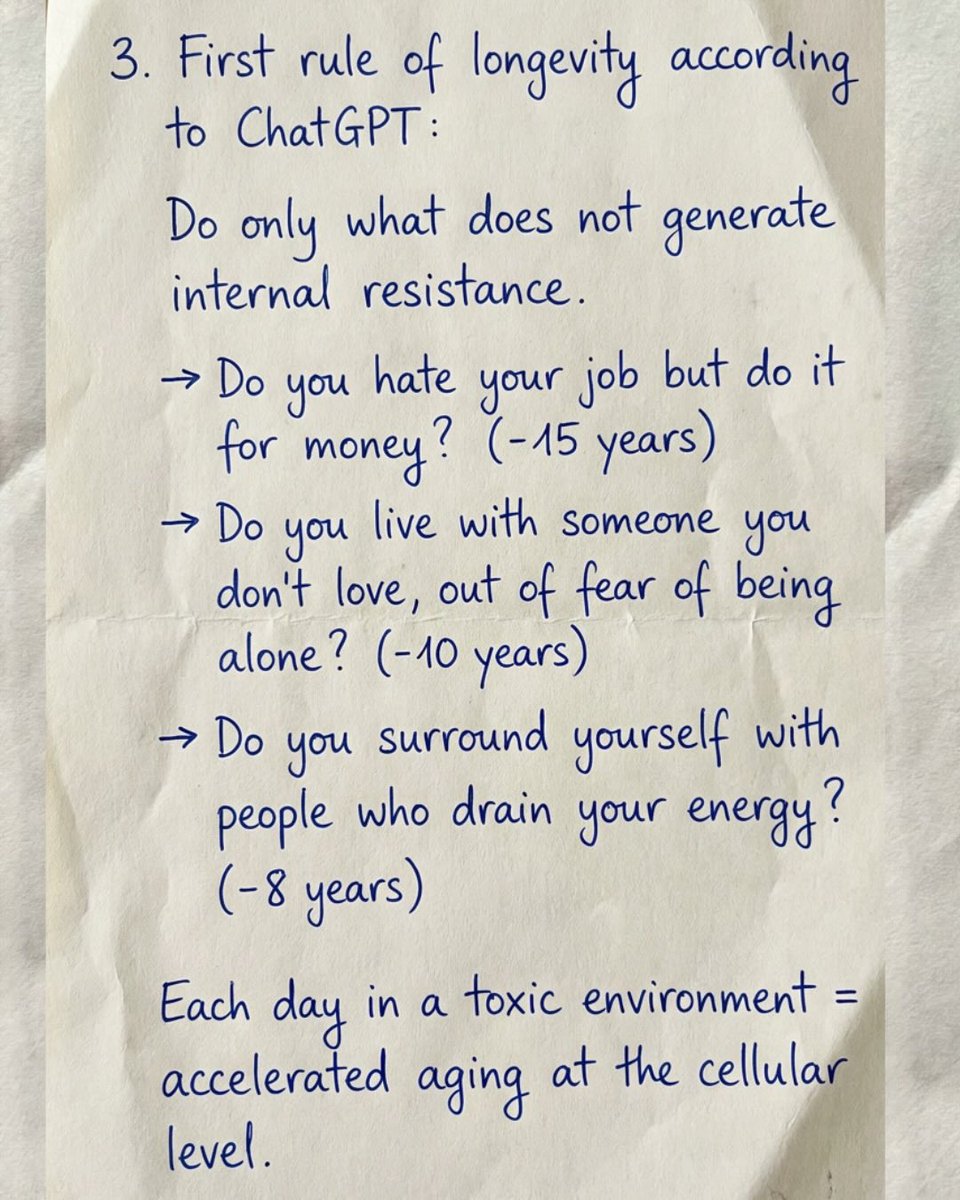 3. First rule of longevity according
to ChatGPT:
Do only what does not generate
internal resistance.
→ Do you hate your job but do it
for money? (-15 years)
→ Do you live with someone you
don't love, out of fear of being
alone? (-10 years)
→ Do you surround yourself with
people who drain your energy?
(-8 years)
Each day in a toxic environment =
accelerated aging at the cellular
level.